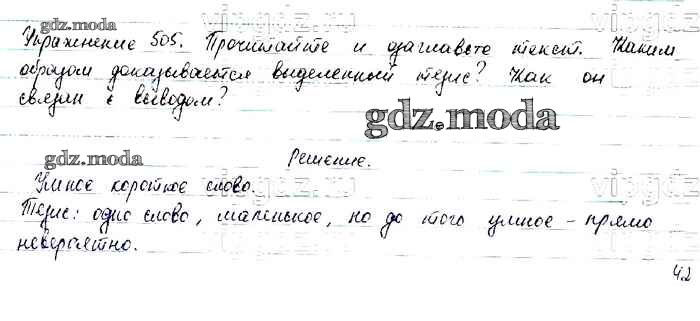 gdz.moda
vipgdz
Упражнение 505. Прочитайте и озаглавьте текст. Каким
образом доказывается выделенный тезис? Как он
связан с выводом?
gdz.moda
gdz.moda
Решение.
vipgdz
Умное короткое слово.
Тезис: одно слово, маленькое, но до того умное - прямо
невероятно.